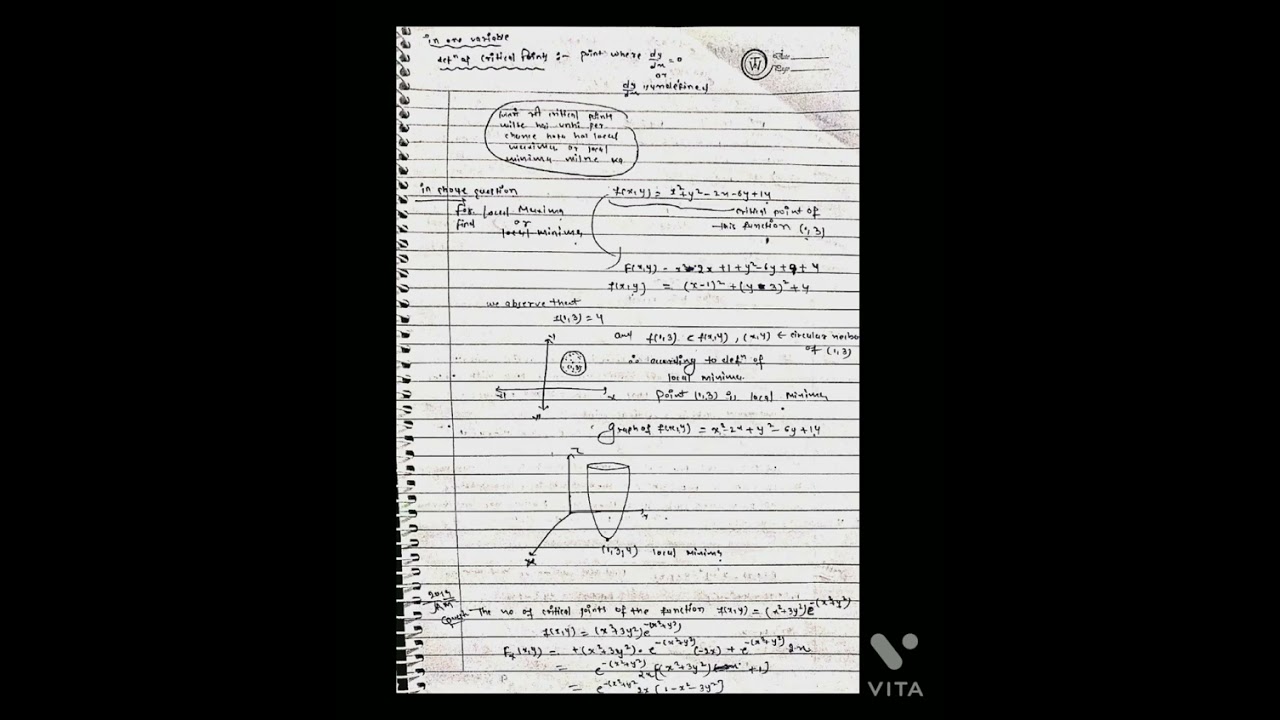 in one variable
defⁿ of critical points :- point where dy/dx = 0
or
dy/dx is undefined
critical points
milte hai unhi per
chance hota hai local
maxima or local
minima milne ka
in above question
f(x,y) = x²+y²-2x-6y+14
for local Maxima
find or
local minima
critical point of
this function (1,3)
f(x,y) = x²-2x+1+y²-6y+9+4
f(x,y) = (x-1)²+(y-3)²+4
we observe that
f(1,3) = 4
and f(1,3) < f(x,y), (x,y) ← circular neibo
of (1,3)
(1,3)
∴ according to defⁿ of
local minima.
x
point (1,3) is local minima
graph of f(x,y) = x²-2x+y²-6y+14
z
(1,3,4) local minima
2019
Quest The no of critical points of the function f(x,y) = (x²+3y²)e^-(x²+y²)
f(x,y) = (x²+3y²)e^-(x²+y²)
Fx(x,y) = +(x²+3y²)·e^-(x²+y²)(-2x) + e^-(x²+y²) 2x
= e^-(x²+y²) 2x[-(x²+3y²) +1]
= e^-(x²+y²) 2x[1-x²-3y²]
VITA